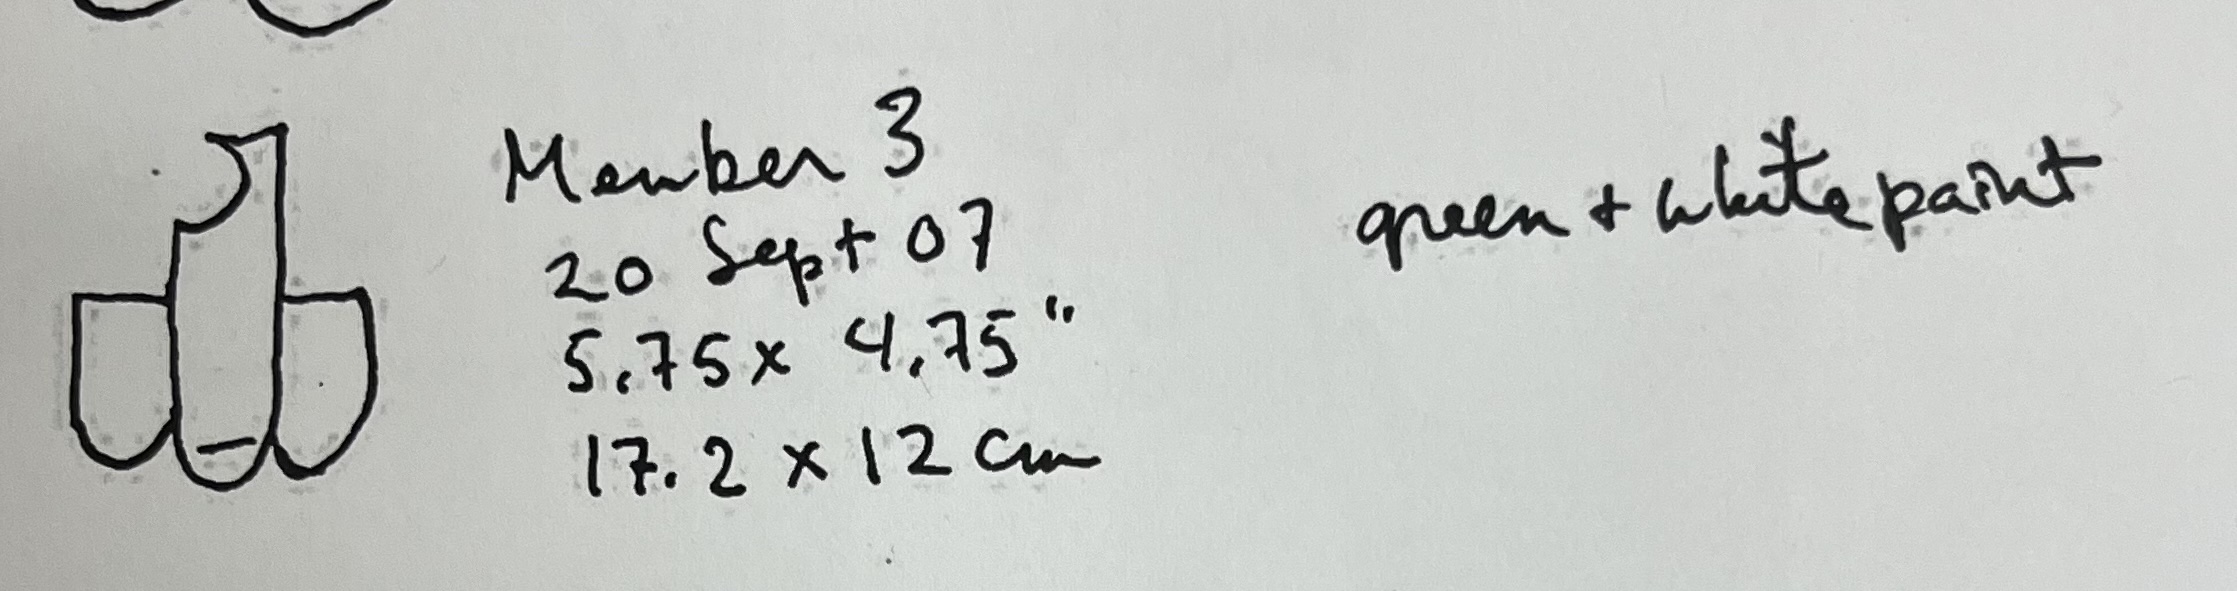 Member 3
20 Sept 07
5.75 x 4.75"
17.2 x 12 cm
green + white paint